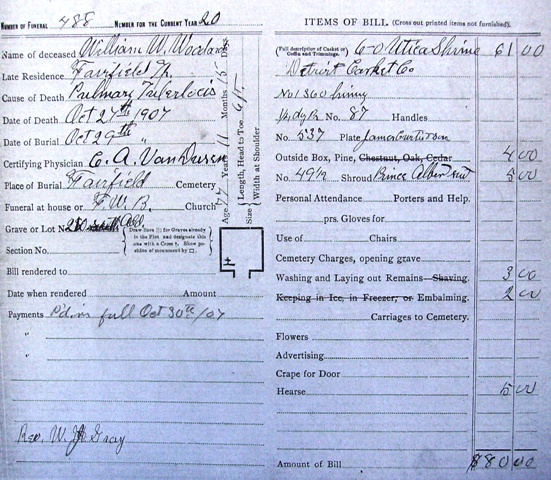 NUMBER OF FUNERAL 488 NUMBER FOR THE CURRENT YEAR 20
Name of deceased William W. Woodard
Late Residence Fairfield
Cause of Death Pulmary Tuberlocis
Date of Death Oct 27th 1907
Date of Burial Oct 29th "
Certifying Physician C. A. Van Dusen
Place of Burial Fairfield Cemetery
Funeral at house or F.W.B. Church
Grave or Lot No. 250
Draw lines for Graves already in the Plot and designate this one with a Cross †. Show position of monument by □.
Section No.
Bill rendered to
Date when rendered Amount
Payments P'd in full Oct 30th/07
"
"
Rev. W. Gray
Age 77 Years 11 Months 15 Days
Size Length, Head to Toe
Width at Shoulder
ITEMS OF BILL (Cross out printed items not furnished).
(Full description of Casket or Coffin and Trimmings. 6-0 Utica Shrine 61 00
Detroit Casket Co
No 1360 lining
Hndgs No. 87 Handles
No. 537 Plate
Outside Box, Pine, Chestnut, Oak, Cedar 4 00
No. 49½ Shroud Prince Albert suit 5 00
Personal Attendance Porters and Help.
prs. Gloves for
Use of Chairs
Cemetery Charges, opening grave
Washing and Laying out Remains Shaving. 3 00
Keeping in Ice, in Freezer, or Embalming. 2 00
Carriages to Cemetery.
Flowers
Advertising.
Crape for Door
Hearse 5 00
Amount of Bill $80 00